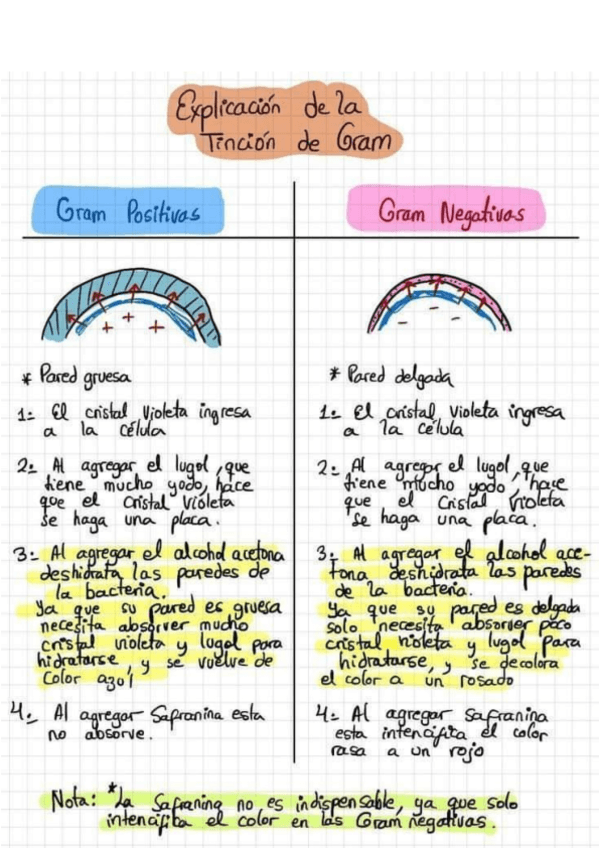 Explicación de la
Tinción de Gram
Gram Positivas
* Pared gruesa
1:- El cristal violeta ingresa
a la célula
2:- Al agregar el lugol, que
tiene mucho yodo, hace
que el cristal violeta
se haga una placa.
3:- Al agregar el alcohol acetona
deshidrata las paredes de
la bacteria.
Ya que su pared es gruesa
necesita absorver mucho
cristal violeta y lugol para
hidratarse, y se vuelve de
color azul
4:- Al agregar Safranina esta
no absorve.
Gram Negativas
* Pared delgada
1:- El cristal violeta ingresa
a la célula
2:- Al agregar el lugol, que
tiene mucho yodo, hace
que el cristal violeta
se haga una placa.
3:- Al agregar el alcohol ace-
tona deshidrata las paredes
de la bacteria.
Ya que su pared es delgada
solo necesita absorver poco
cristal violeta y lugol para
hidratarse, y se decolora
el color a un rosado
4:- Al agregar safranina
esta intencifita el color
rasa a un rojo
Nota: *La Safranina no es indispensable, ya que solo
intencifita el color en las Gram negativas.